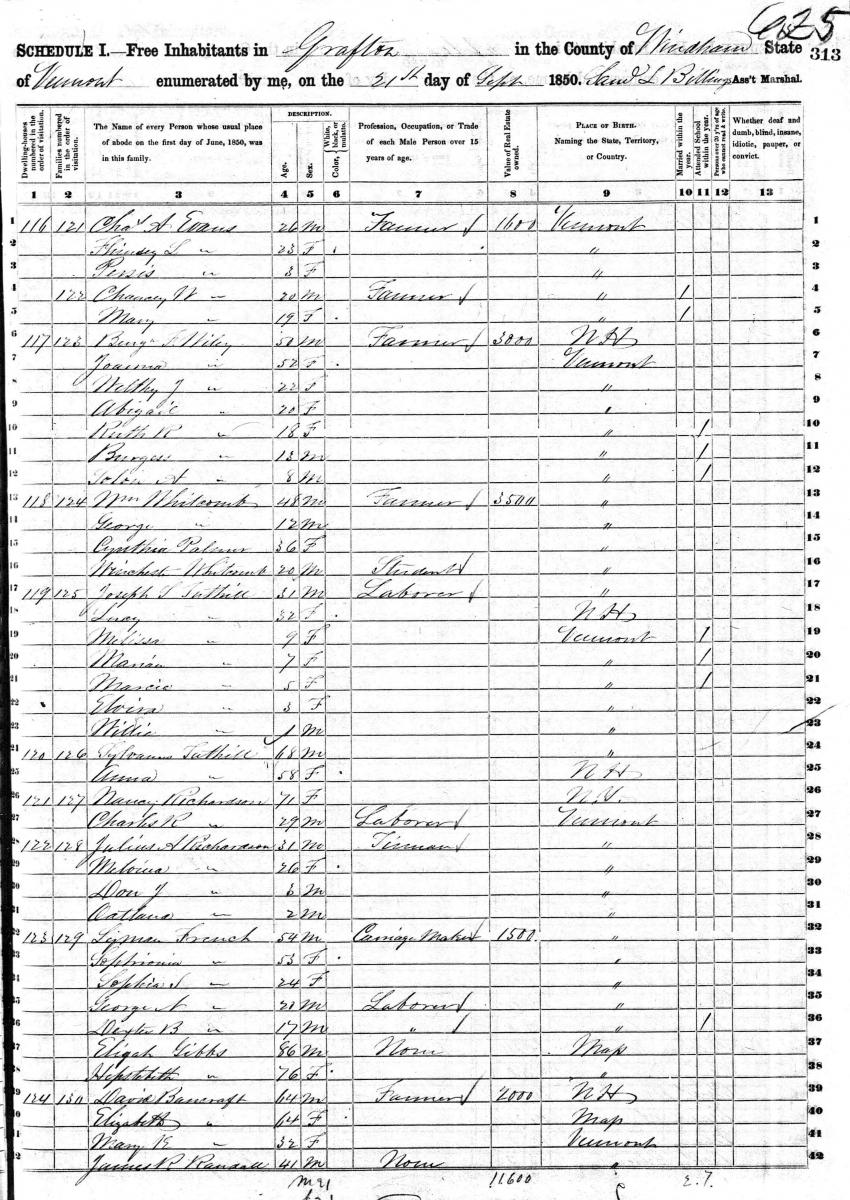 625
SCHEDULE I.—Free Inhabitants in Grafton in the County of Windham State 313
of Vermont enumerated by me, on the 21st day of Sept 1850. Saml L Billings Ass't Marshal.
Dwelling-houses numbered in the order of visitation. Families numbered in the order of visitation. The Name of every Person whose usual place of abode on the first day of June, 1850, was in this family. DESCRIPTION. Age. Sex. Color, White, black, or mulatto. Profession, Occupation, or Trade of each Male Person over 15 years of age. Value of Real Estate owned. PLACE OF BIRTH. Naming the State, Territory, or Country. Married within the year. Attended School within the year. Persons over 20 y'rs of age who cannot read & write. Whether deaf and dumb, blind, insane, idiotic, pauper, or convict.
1 2 3 4 5 6 7 8 9 10 11 12 13
1 116 121 Chas A Evans 26 M Farmer 1600 Vermont 1
2 L " 23 F " 2
3 Persis " 3 F " 3
4 122 Chancey W " 20 M Farmer " 1 4
5 Mary " 19 F " 1 5
6 117 123 Wiley 50 M Farmer 3000 NH 6
7 Joanna " 52 F Vermont 7
8 Welthy J " 22 " 8
9 Abigail " 20 F " 9
10 Ruth R " 18 F " 1 10
11 Burgess " 13 M " 1 11
12 Solon A " 8 M " 1 12
13 118 124 Wm Whitcomb 48 M Farmer 3500 " 13
14 George " 12 M " 14
15 Cynthia Palmer 36 F " 15
16 Winchest Whitcomb 20 M Student " 16
17 119 125 Joseph S Tuthill 31 M Laborer " 17
18 Lucy " 32 F NH 18
19 Melissa " 9 F Vermont 1 19
20 Marian " 7 F " 1 20
21 Marcia " 5 F " 1 21
22 Elvira " 3 F " 22
23 Willie " 1 M " 23
24 120 126 Sylvanus Tuthill 68 M " 24
25 Anna " 58 F NH 25
26 121 127 Nancy Richardson 71 F 26
27 Charles R " 29 M Laborer Vermont 27
28 122 128 Julius A Richardson 31 M Tinman " 28
29 Melvina " 26 F " 29
30 Don J " M " 30
31 " 2 M " 31
32 123 129 Lyman French 54 M Carriage Maker 1500 " 32
33 Sophronia " 53 F " 33
34 Sophia " 24 F " 34
35 George N " M Laborer " 35
36 Dexter B " 17 M " " 1 36
37 Eligah Gibbs 86 M None Mass 37
38 " 76 F " 38
39 124 130 David Bancroft 64 M Farmer 2000 NH 39
40 Elizabeth " 64 F Mass 40
41 Mary E " 32 F Vermont 41
42 James R Randall 41 M None " 42
11600